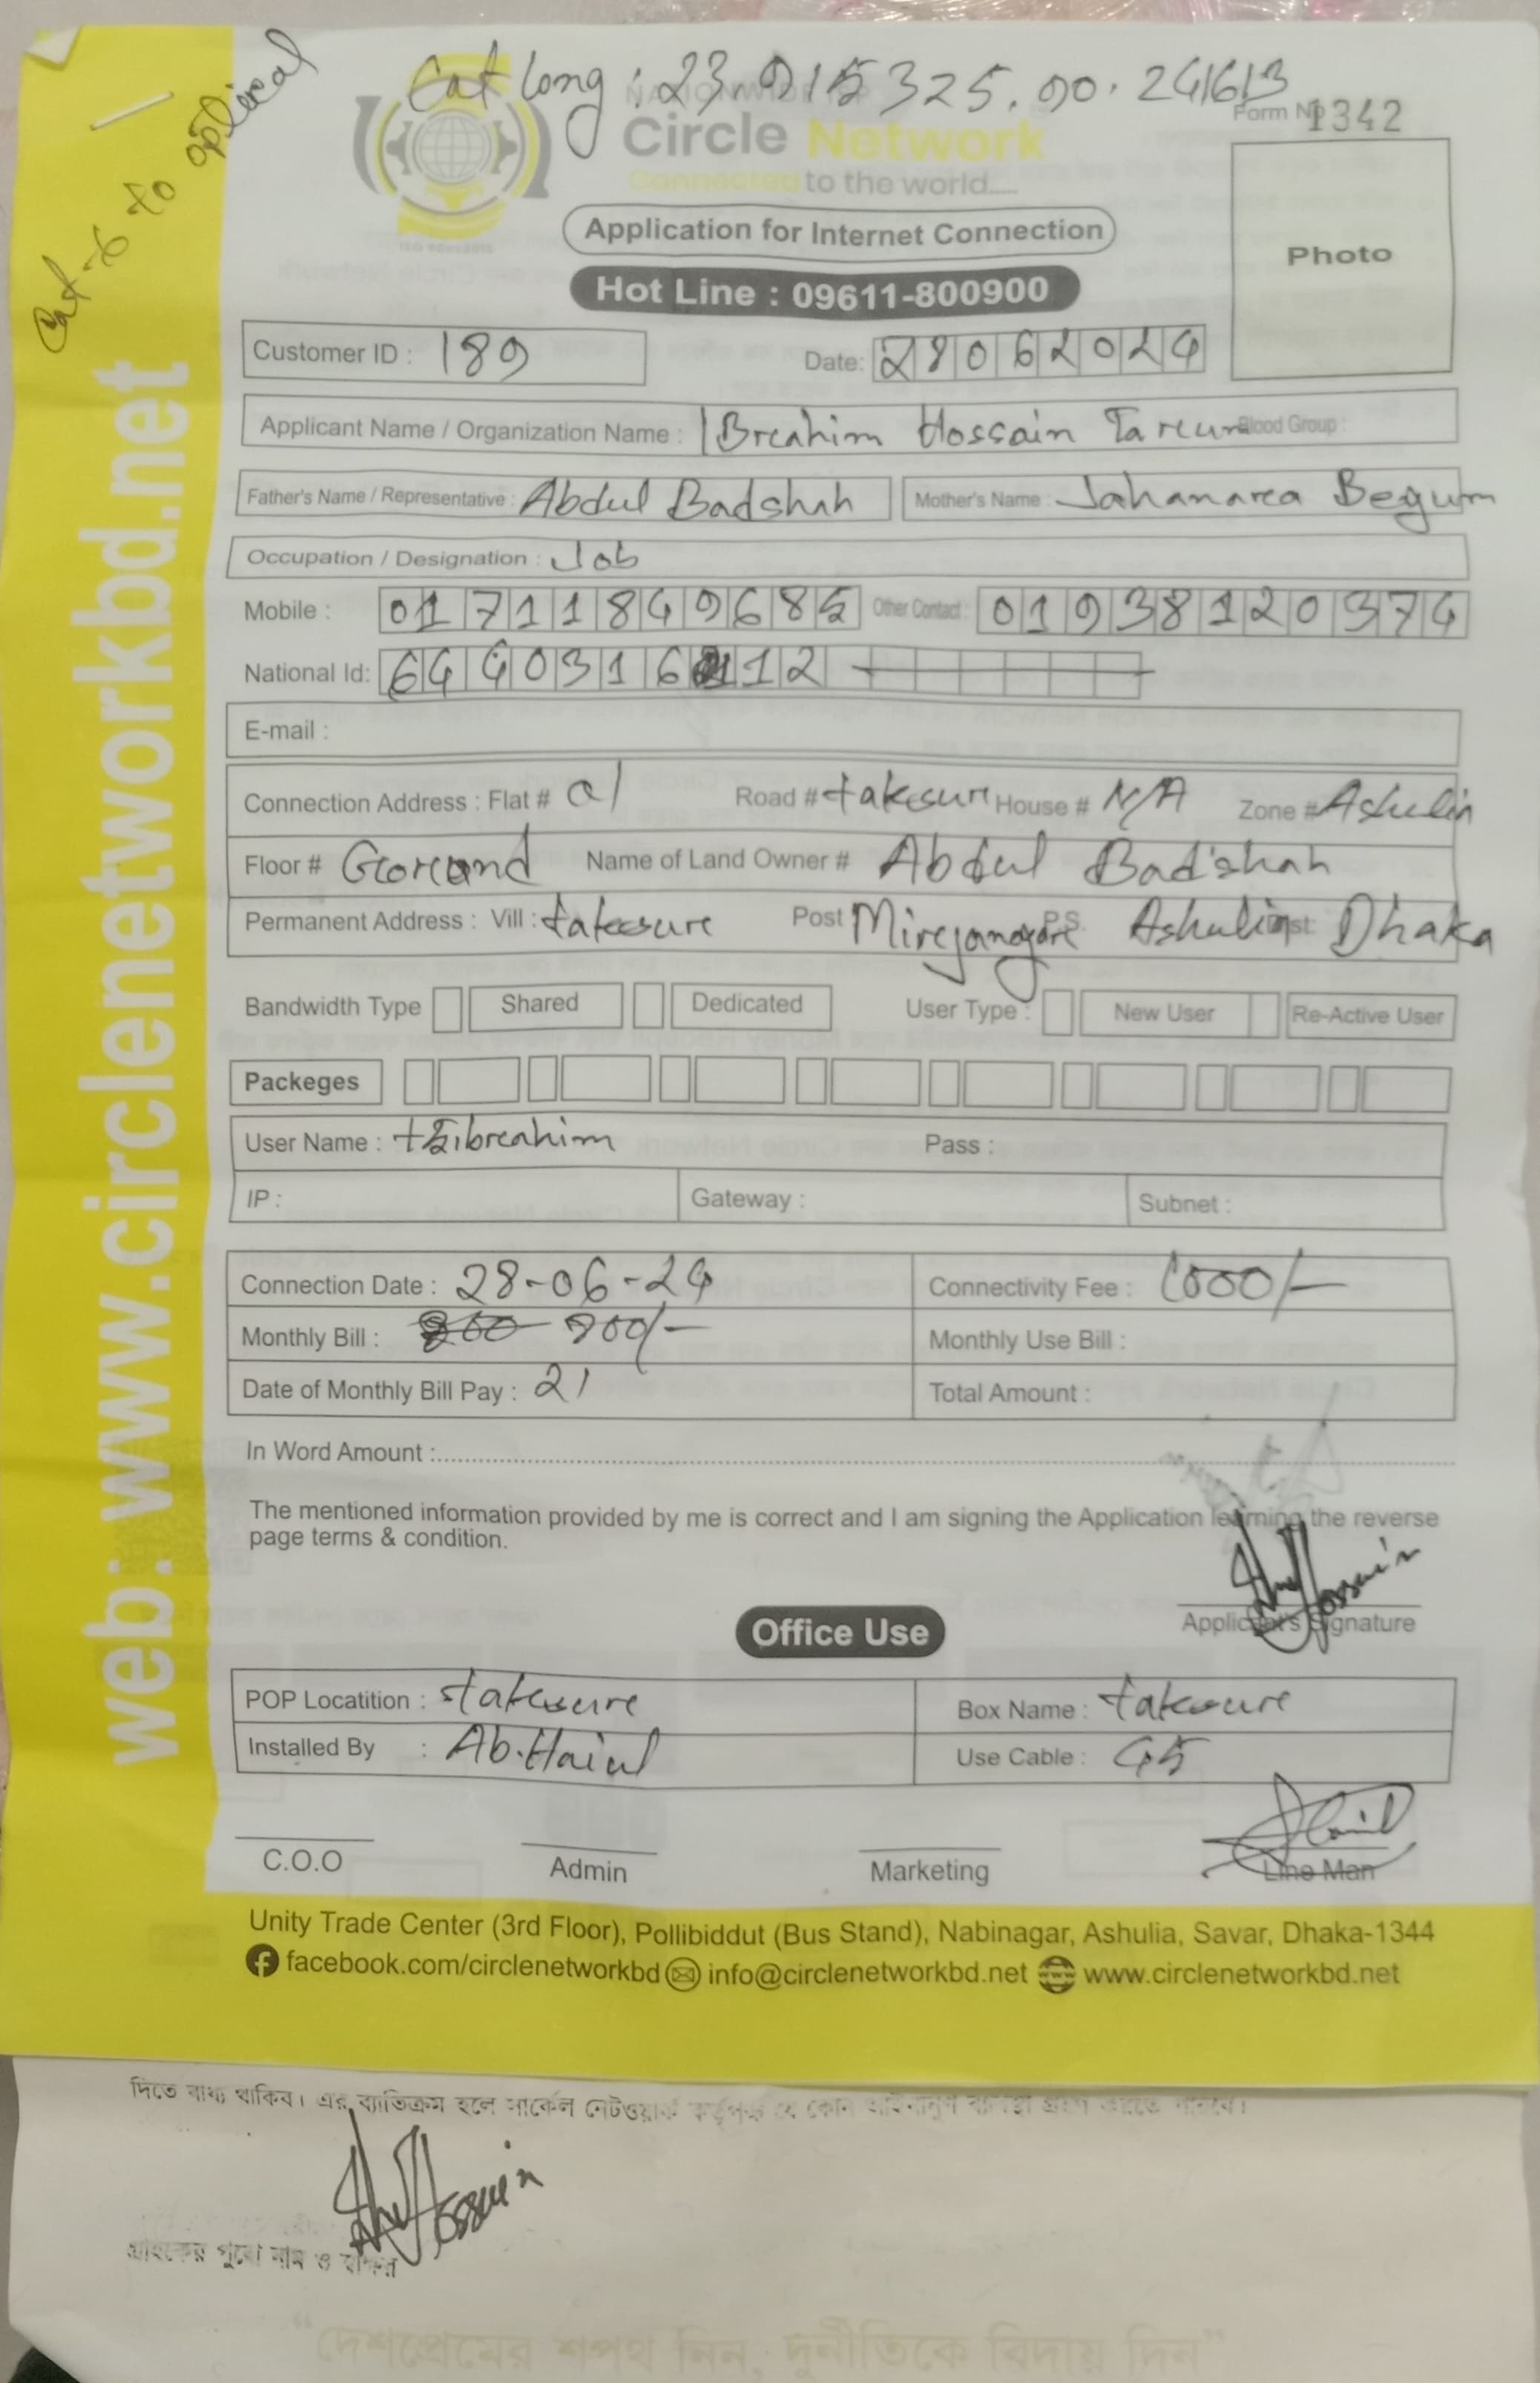 Cat-6 to optical
Cat long : 23.915325.90.241613
NATIONWIDE ISP
Form No 1342
Circle Network
Connected to the world....
ISO 9001:2015
Application for Internet Connection
Photo
Hot Line : 09611-800900
Customer ID : 189 Date: 28062024
Applicant Name / Organization Name : IBrahim Hossain Tareun Blood Group :
Father's Name / Representative : Abdul Badshah Mother's Name : Jahanara Begum
Occupation / Designation : Job
Mobile : 01711849685 Other Contact : 01938120374
National Id: 6440316 112
E-mail :
Connection Address : Flat # a1 Road # taksure House # N/A Zone # Ashulia
Floor # Ground Name of Land Owner # Abdul Badshah
Permanent Address : Vill : taksure Post Mirejanagare P.S. Ashulia Dist: Dhaka
Bandwidth Type Shared Dedicated User Type : New User Re-Active User
Packeges
User Name : Pass :
IP : Gateway : Subnet :
Connection Date : 28-06-24 Connectivity Fee : 1000/-
Monthly Bill : 800 900/- Monthly Use Bill :
Date of Monthly Bill Pay : 21 Total Amount :
In Word Amount :
The mentioned information provided by me is correct and I am signing the Application learning the reverse
page terms & condition.
Hossain
Applicant's Signature
Office Use
POP Locatition : taksure Box Name : taksure
Installed By : Ab. Use Cable : 45
C.O.O Admin Marketing Line Man
Unity Trade Center (3rd Floor), Pollibiddut (Bus Stand), Nabinagar, Ashulia, Savar, Dhaka-1344
facebook.com/circlenetworkbd info@circlenetworkbd.net www.circlenetworkbd.net
web: www.circlenetworkbd.net
দিতে বাধ্য থাকিব। এর ব্যতিক্রম হলে সার্কেল নেটওয়ার্ক কর্তৃপক্ষ যে কোন আইনানুগ ব্যবস্থা গ্রহণ করতে পারবে।
Hossain
গ্রাহকের পুরো নাম ও স্বাক্ষর
“দেশপ্রেমের শপথ নিন, দুর্নীতিকে বিদায় দিন”